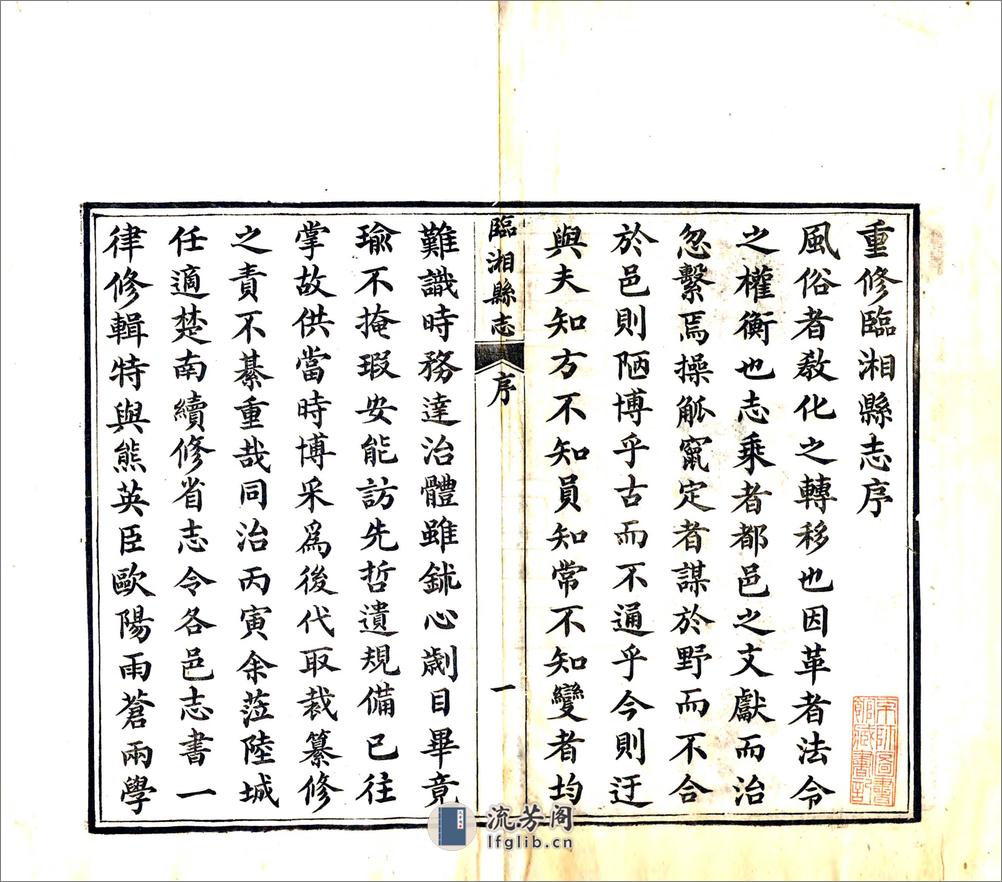 重修臨湘縣志序
風俗者教化之轉移也因革者法令
之權衡也志乘者都邑之文獻而治
忽繫焉操觚竄定者謀於野而不合
於邑則陋博乎古而不通乎今則迂
與夫知方不知員知常不知變者均
臨湘縣志
序
一
難識時務達治體雖鉥心劌目畢竟
瑜不掩瑕安能訪先哲遺規備已往
掌故供當時博采爲後代取裁纂修
之責不綦重哉同治丙寅余蒞陸城
任適楚南續修省志令各邑志書一
律修輯特與熊英臣歐陽雨蒼兩學
流芳阁
lfglib.cn